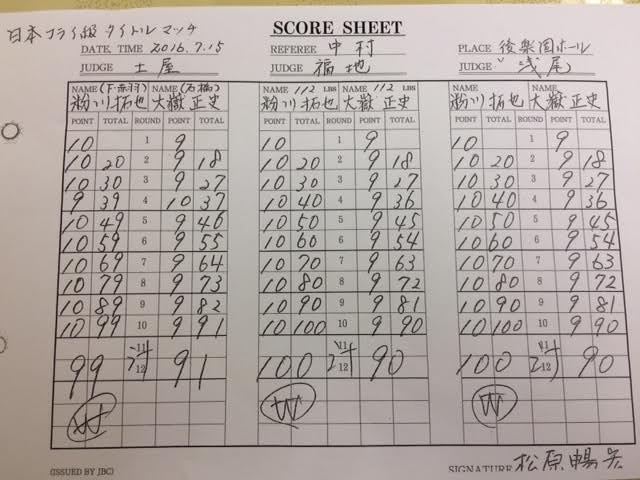 日本フライ級タイトルマッチ
SCORE SHEET
DATE, TIME 2016.7.15 REFEREE 中村 PLACE 後楽園ホール
JUDGE 土屋 JUDGE 福地 JUDGE 浅尾
NAME (下・赤羽) NAME (石橋) NAME 112 LBS NAME 112 LBS NAME NAME
粉川拓也 大嶽正史 粉川拓也 大嶽正史 粉川拓也 大嶽正史
POINT TOTAL ROUND POINT TOTAL POINT TOTAL ROUND POINT TOTAL POINT TOTAL ROUND POINT TOTAL
10 1 9 10 1 9 10 1 9
10 20 2 9 18 10 20 2 9 18 10 20 2 9 18
10 30 3 9 27 10 30 3 9 27 10 30 3 9 27
9 39 4 10 37 10 40 4 9 36 10 40 4 9 36
10 49 5 9 46 10 50 5 9 45 10 50 5 9 45
10 59 6 9 55 10 60 6 9 54 10 60 6 9 54
10 69 7 9 64 10 70 7 9 63 10 70 7 9 63
10 79 8 9 73 10 80 8 9 72 10 80 8 9 72
10 89 9 9 82 10 90 9 9 81 10 90 9 9 81
10 99 10 9 91 10 100 10 9 90 10 100 10 9 90
11 11 11
99 91 100 90 100 90
12 12 12
W W W
(ISSUED BY JBC) SIGNATURE 松原